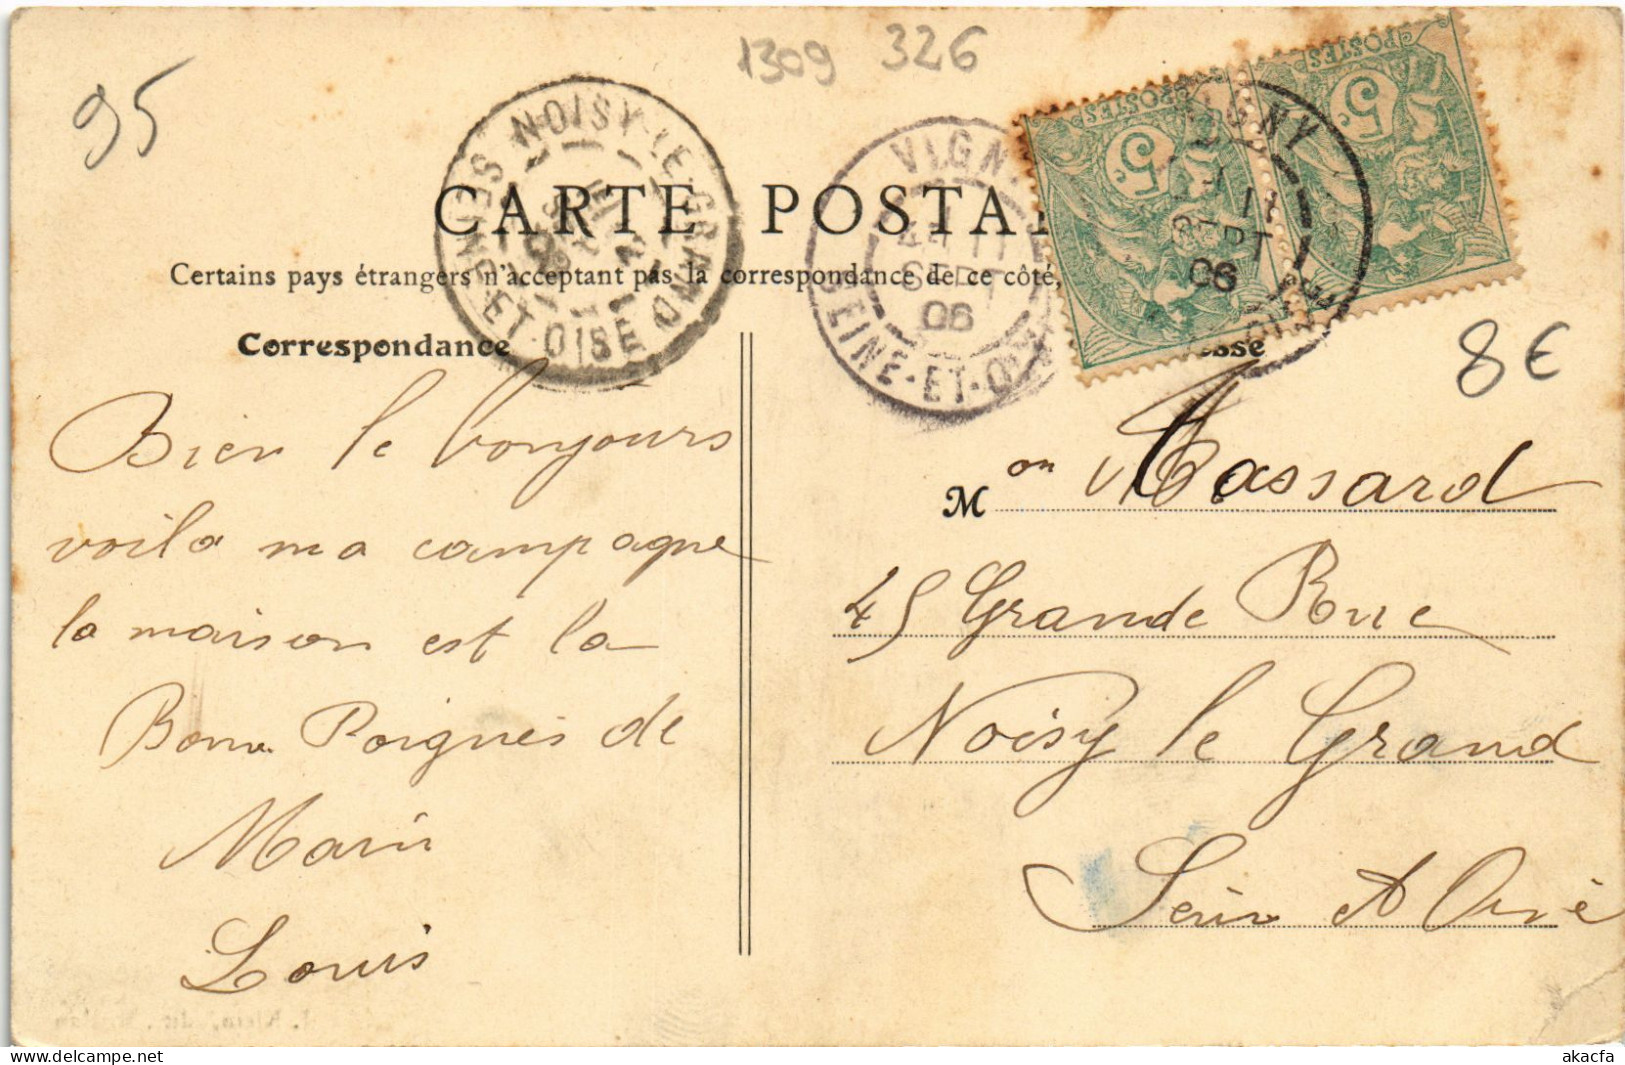 1309 326
95
NOISY-LE-GRAND
SEINE-ET-OISE
VIGNY
11
SEPT
06
SEINE-ET-OISE
POSTES
5
POSTES
5
VIGNY
11
SEPT
06
CARTE POSTA
Certains pays étrangers n'acceptant pas la correspondance de ce côté,
Correspondance
esse
8€
Bien le bonjours
voila ma campagne
la maison est la
Bonne Poignés de
Main
Louis
Mon Massard
45 Grande Rue
Noisy le Grand
Seine et Oise
delcampe.net
akacfa